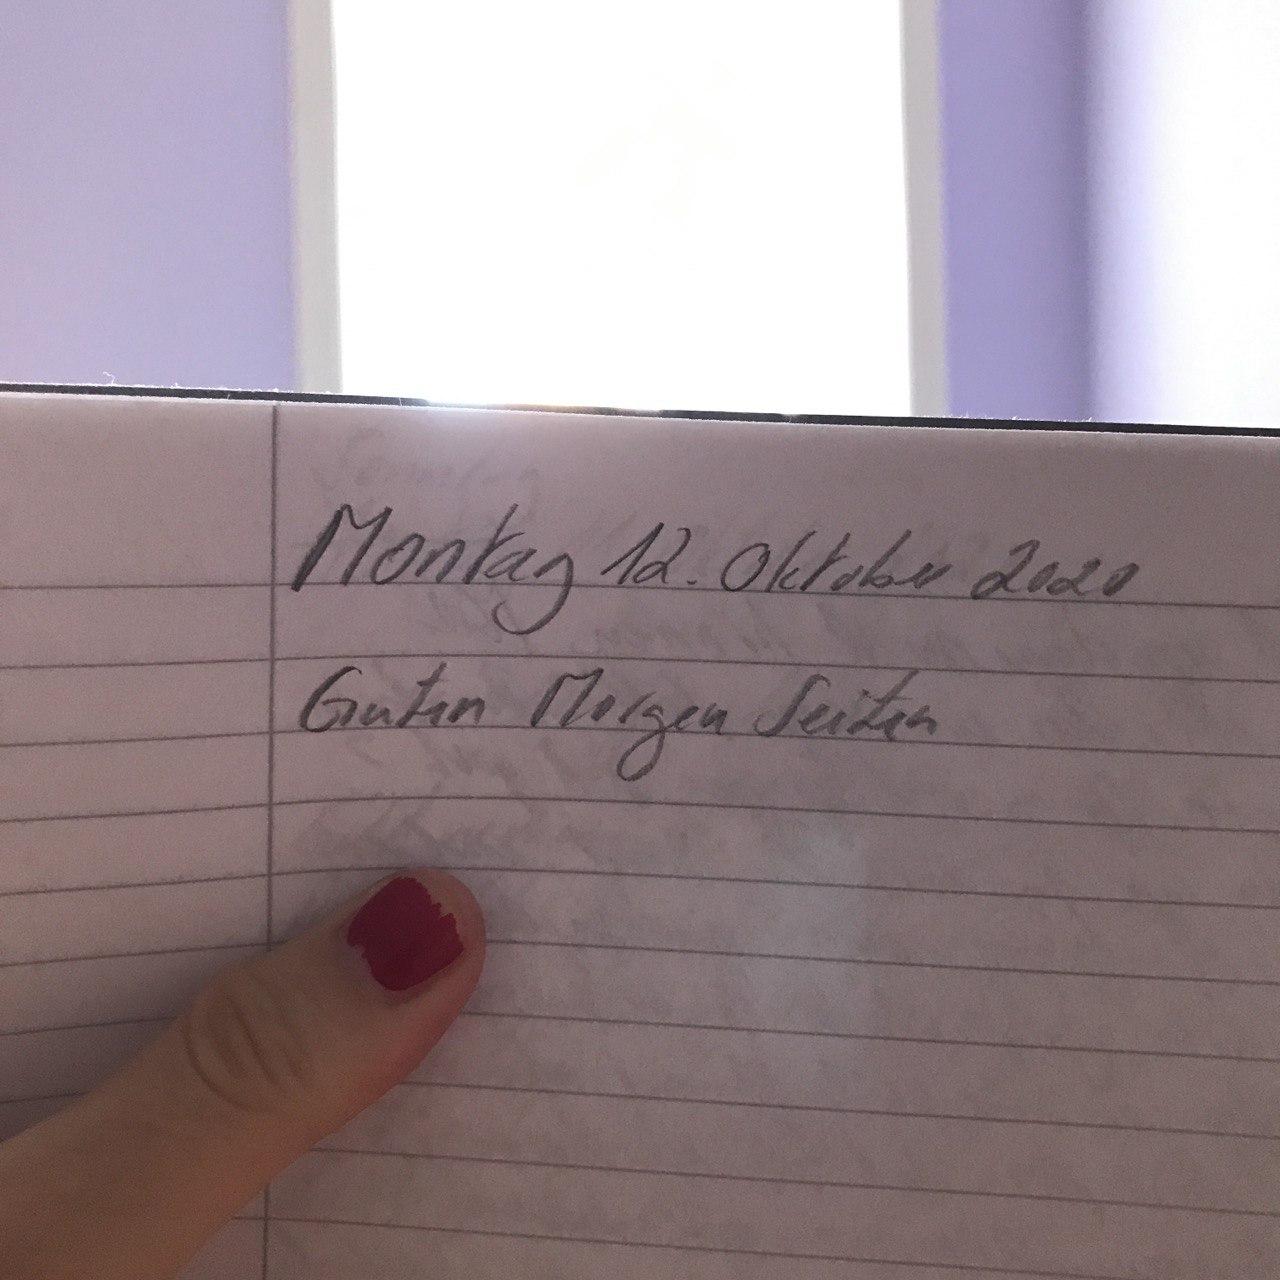 Montag 12. Oktober 2020
Guten Morgen Seiten